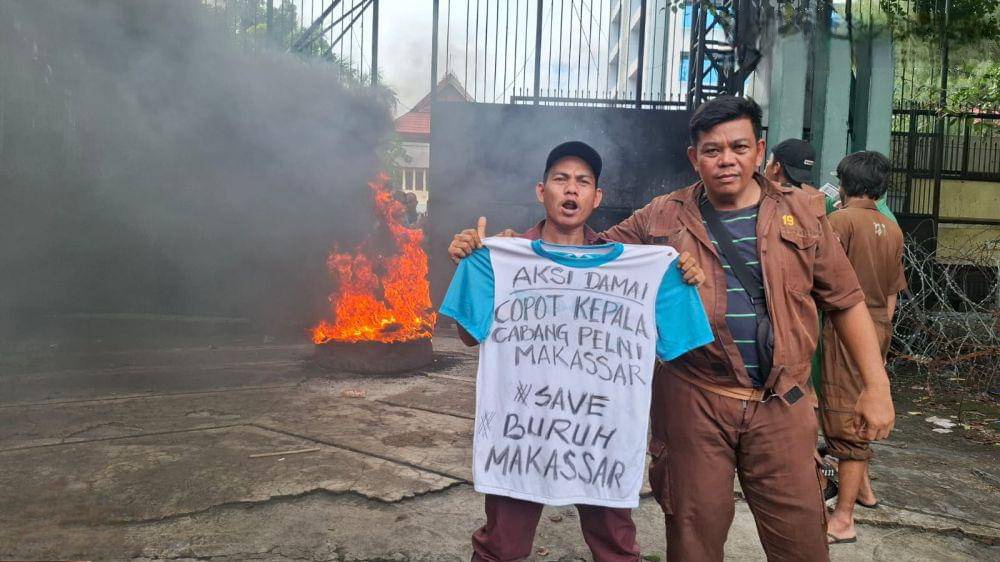 AKSI DAMAI
COPOT KEPALA
CABANG PELNI
MAKASSAR
#SAVE
# BURUH
MAKASSAR
19